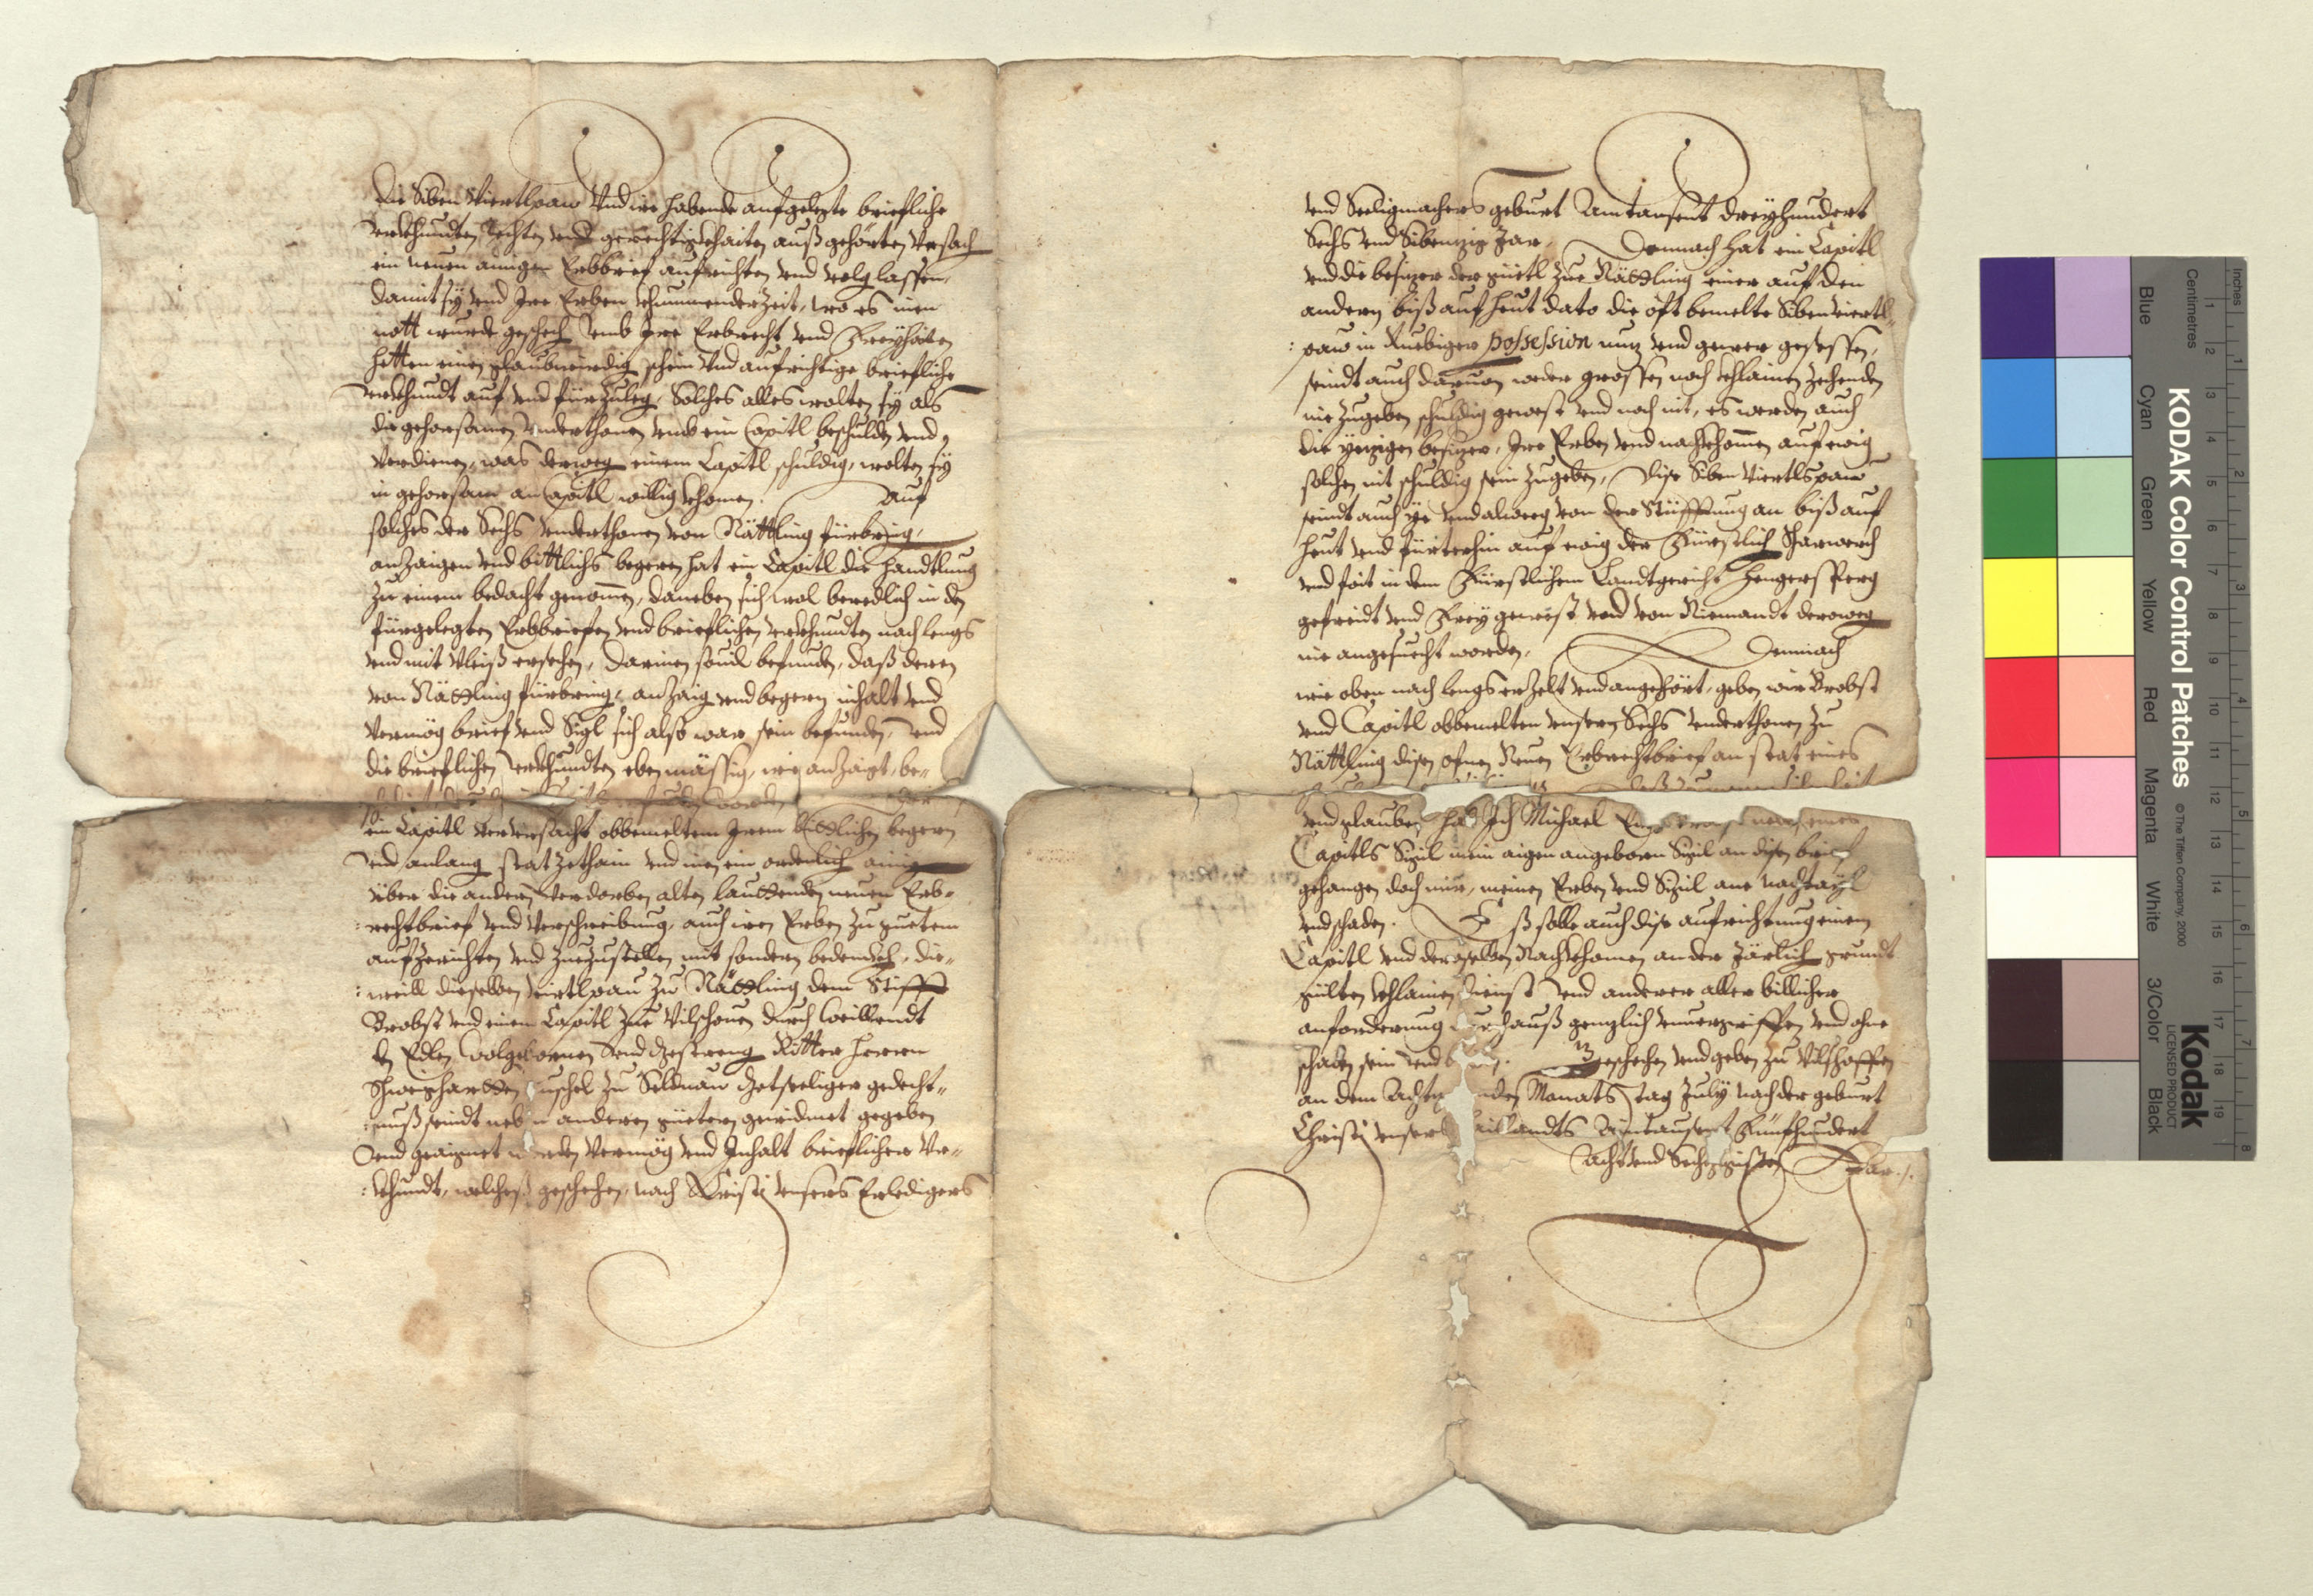 Die Siben Viertlpaw Und ire habende aufgelegte briefliche
Urkhundten, Rechten und gerechtigkhaiten, auß gehörten Ursach
ein neuen ainigen Erbbrief aufrichten und volg lassen,
damit sÿ und Ire Erben khummender Zeit, wo es inen
nott wurde geschech umb Ire Erbrecht und Freyhaiten
hetten einen glaubwirdig schein Und aufrichtige briefliche
Urkhundt auf und fürzuleg, Solches alles wolten sÿ als
die gehorsamen Underthonen umb ein Capitl beschulden und
Verdienen, was derweg einem Capitl schuldig, wolten sÿ
in gehorsam an Capitl willig khomen. Auf
solches der Sechs Underthonen von Nättling fürbring,
anzaigen und bittlichs begeren hat ein Capitl die handtlung
Zu einem bedacht genommen, daneben sich wol beredlich in den
fürgelegten Erbbriefen und brieflichen Urkhundten nach lengs
und mit Vleiß ersehen, Darinen souil befunden, daß deren
von Nättling fürbring, anzaig und begern inhalt und
Vermög brief und Sigl sich also war sein befunden, Und
die brieflichen Urkhundten eben mässig, wie anzaigt, be-
ein Capitl verursacht obbemeltem Irem bittlichen begern
und anlang statzethain und inen ein ordenlich ainig
über die andern verdorben alten lauttenden neuen Erb-
rechtbrief und Verschreibung, auch iren Erben zu guetem
aufzerichten und zuezustellen mit sondern bedennckh, die-
weill dieselben Viertlpau zu Nättling dem Stifft
Brobst und einem Capitl zue Vilshouen durch Weillendt
den Edlen Wolgebornen und Gestreng Ritter herrn
Schweighartten Tuschel zu Seldnau Gottseeliger gedecht-
nuß seindt neben anderen güetern gewidmet gegeben
und geaignet worden Vermög und Inhalt brieflicher Ur-
khundt, welches geschehen, nach Christi unsers Erledigers
und Seeligmachers geburt Aintausent dreÿhundert
Sechs und Sibenzig Jar. Demnach hat ein Capitl
und die besizer der güetl zue Nättling einer auf den
andern biß auf heut dato die oft bemelte Siben viertl-
paw in Ruebiger possession nuz und gewer gesessen,
seindt auch dauon weder grossen noch khlainen Zehenden
nie zugeben schuldig gewest und noch nit, es werden auch
die yezigen besizer, Ire Erben und nachkhommen auf ewig
solchen nit schuldig sein zugeben, Dise Siben Viertlpaw
seindt auch ye und alweg von der Stüfftung an biß auf
heut und fürterhin auf ewig der Fürstlich Scharwerch
und foit in dem Fürstlichem Landtgericht Hengersperg
gefreidt und Freÿ gewest und von Niemandt derweg
nie angesuecht worden. Demnach
wie oben nach lengs erzelt und angehört, geben wir Brobst
und Capitl obbemelten unsern Sechs Underthonen zu
Nättling disen ofnen Neuen Erbrechtbrief an stat eines
und glauben hab Ich Michael
Capitls Sigil mein aigen angeborn Sigil an disen brief
gehangen doch mir, meinen Erben und Sigil ane nachtayl
und schaden. Eß solle auch dise aufrichtung einem
Capitl und derselben Nachkhomen an der Järlich grundt
gülten khlainen Dienst und anderer aller billicher
anforderung durchauß genzlich unuergriffen und ohne
schaden sein und Geschehen und geben zu Vilshoffen
an dem Monats tag Julÿ nach der geburt
Christi unsers Haillandts Aintausent Fünfhundert
Acht und Sechzigisten Jar.